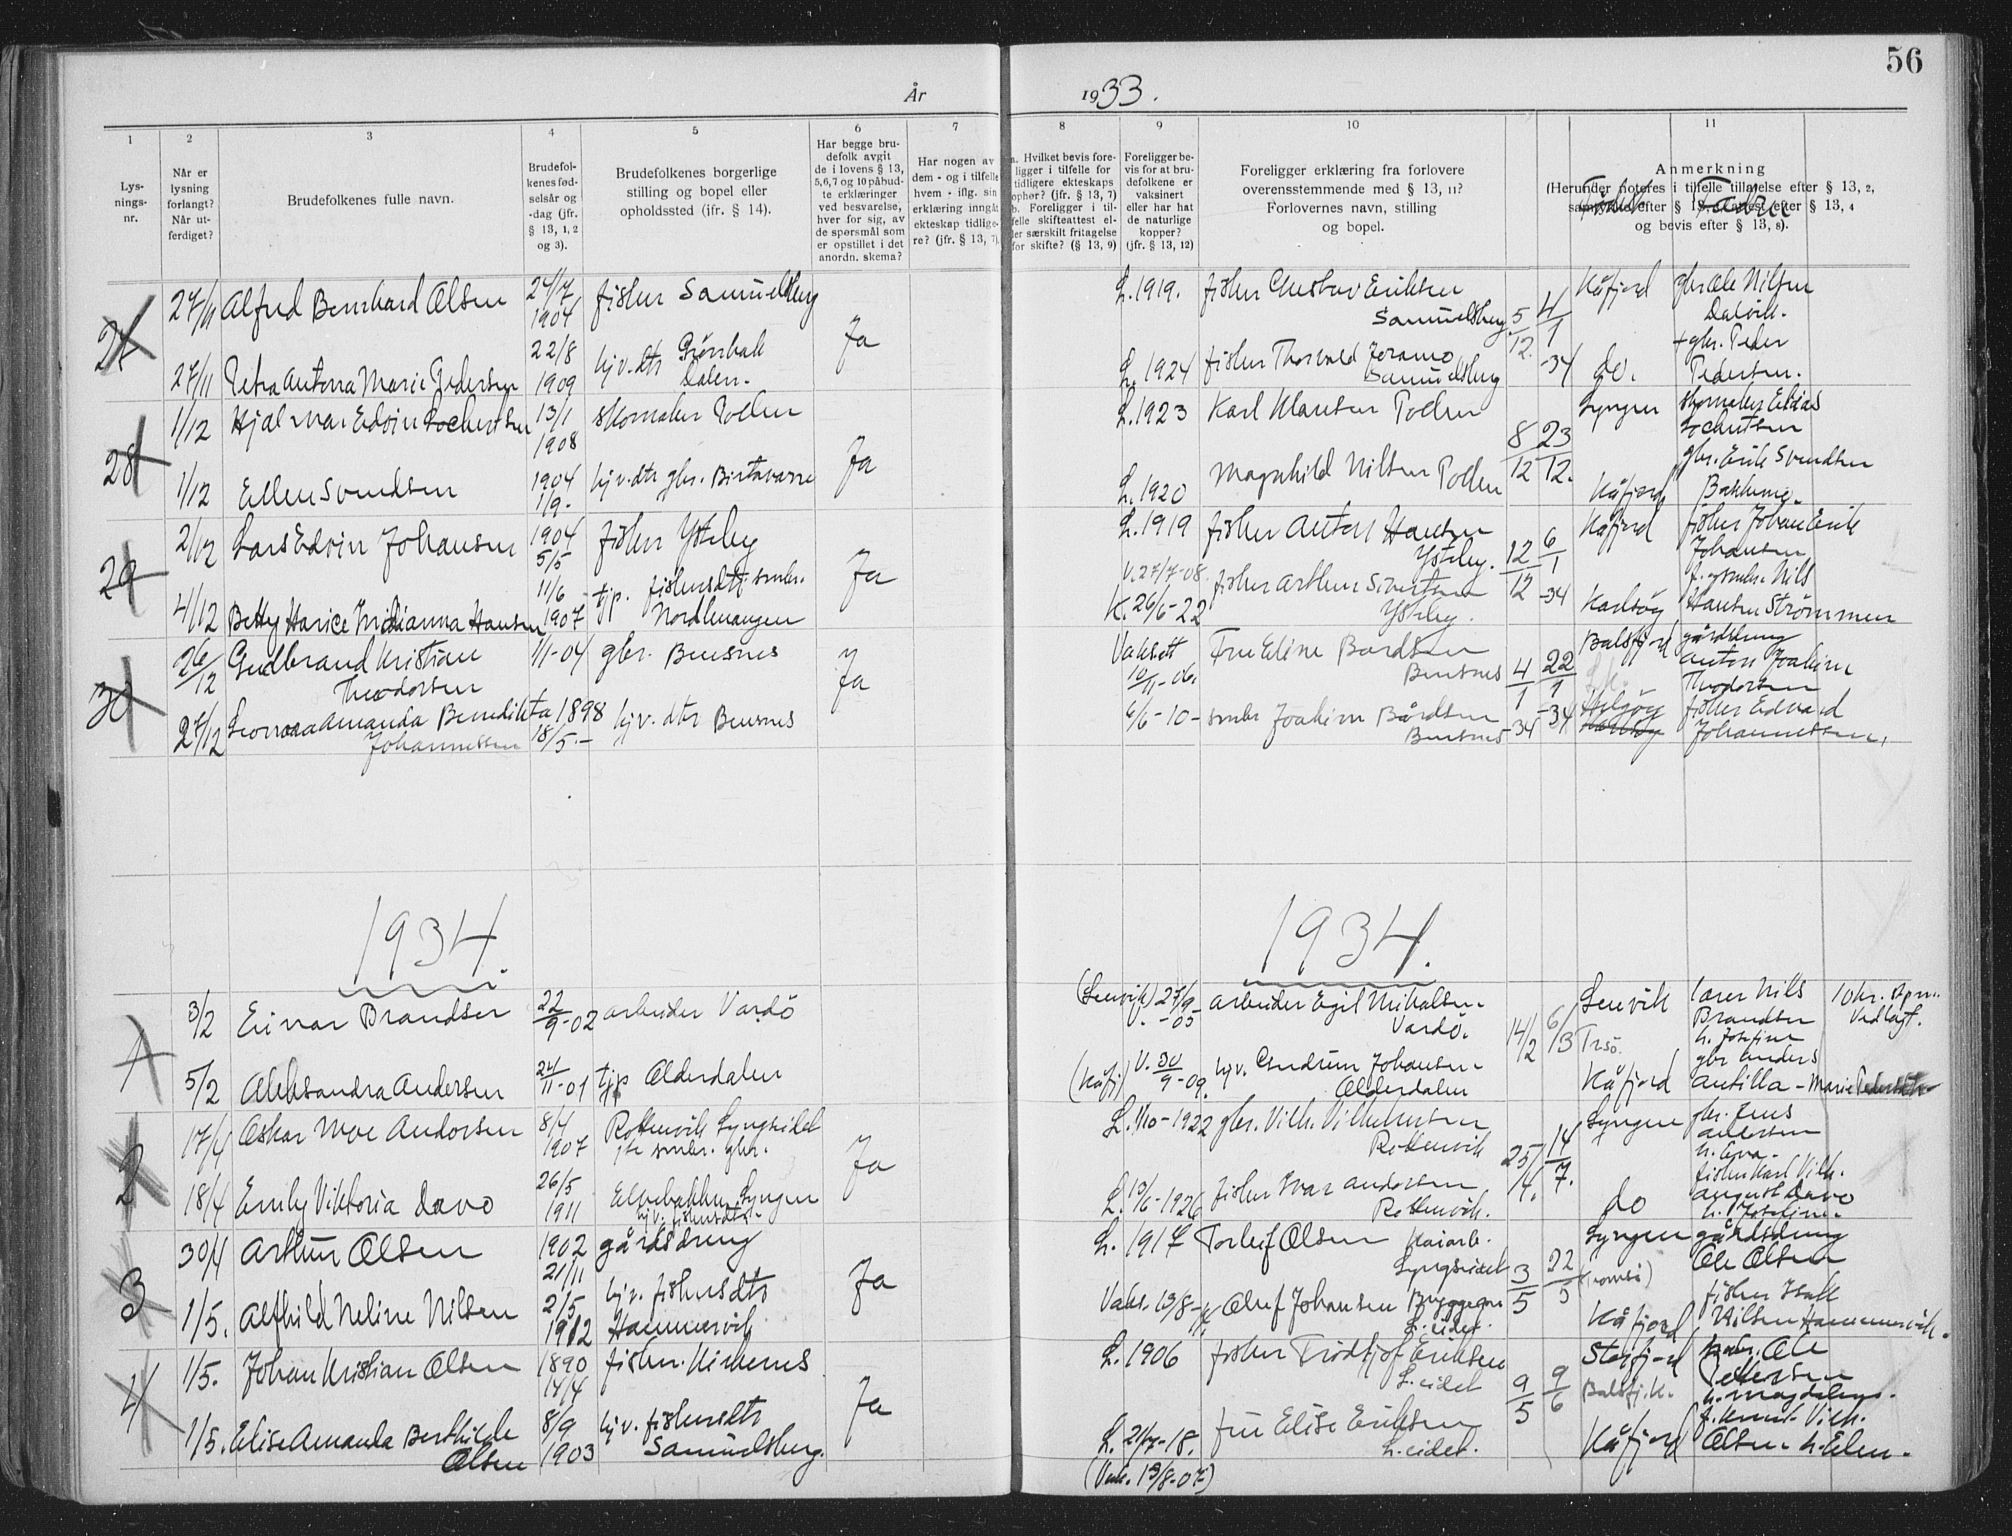 56
År 1933.
1 2 3 4 5 6 7 8 9 10 11
Lys-
nings-
nr.
Når er
lysning
forlangt?
Når ut-
ferdiget?
Brudefolkenes fulle navn.
Brudefol-
kenes fød-
selsår og
-dag (jfr.
§ 13, 1, 2
og 3).
Brudefolkenes borgerlige
stilling og bopel eller
opholdssted (jfr. § 14).
Har begge bru-
defolk avgit
de i lovens § 13,
5,6,7 og 10 påbud-
te erklæringer
ved besvarelse,
hver for sig, av
de spørsmål som
er opstillet i det
anordn. skema?
Har nogen av
dem - og i tilfelle
hvem - iflg. sin
erklæring inngåt
ekteskap tidlige-
re? (jfr. § 13, 7).
a. Hvilket bevis fore-
ligger i tilfelle for
tidligere ekteskaps
ophør? (jfr. § 13, 7)
b. Foreligger i til-
felle skifteattest el-
ler særskilt fritagelse
for skifte? (§ 13, 9)
Foreligger be-
vis for at bru-
defolkene er
vaksinert
eller har hat
de naturlige
kopper?
(jfr. § 13, 12)
Foreligger erklæring fra forlovere
overensstemmende med § 13, 11?
Forlovernes navn, stilling
og bopel.
Anmerkning
(Herunder noteres i tilfelle tillatelse efter § 13, 2,
samtykke efter § 13, 3, attest efter § 13, 4
og bevis efter § 13, 8).
Født Fadru
27/11 Alfred Bernhard Olsen 24/7 1904 fisker Samuelsberg L. 1919. fisker Gustav Eriksen Samuelsberg 5/12 4/1 Kåfjord gbr Ole Nilsen Dalvik.
27 Ja
27/11 Petra Antona Marie Pedersen 22/8 1909 hjv. dtr Dalen. L. 1924 fisker Thorvald Samuelsberg -34 do. + gbr. Peder Pedersen.
1/12 Hjalmar Edvin 13/1 1908 skomaker Pollen L. 1923 Karl Hansen Pollen 8/12 23/12. Lyngen skomaker
28 Ja
1/12 Ellen Svendsen 1904 1/9. hjv. dtr gbr. Birtavarre L. 1920 Magnhild Nilsen Pollen Kåfjord gbr. Erik Svendsen
2/12 Lars Edvin Johansen 1904 5/5 fisker Ytrby L. 1919 fisker Anton Hansen 12/12 6/1 Kåfjord fisker Johan Erik Johansen
29 Ja
4/12 Betty Hansen 11/6 1907 tjp. fiskersdtr Nordlenangen V. 27/7-08 K. 26/6-22 fisker Arthur Sivertsen -34 Karlsøy Nils Hansen Strømmen
26/12 Gudbrand Kristian Theodorsen 1/1-04 gbr. Bensnes Vaksatt 10/11-06. Fru Eline Bårdsen Bensnes 4/1 22/1 Balsfjord gårdsdreng Anton Joakim Theodorsen
30 Ja
27/12 Leonora Amanda Benedikta Johannessen 1898 18/5.- hjv. dtr Bensnes 6/6-10- smbr Joakim Bårdsen Bensnes -34 -34 Helgøy Karlsøy fisker Edvard Johannessen.
1934. 1934.
3/2 Einar Brandsen 22/9-02 arbeider Vardö (Lenvik) V. 27/9-05 arbeider Egil Mikalsen Vardö. 14/2 6/3 Lenvik lærer Nils Brandsen h. Josefine 10 kr. stpm. vedlagt.
1 Trsö.
5/2 Aleksandra Andersen 24/11-01 tjp Olderdalen (Kåfj) V. 30/9-09. hjv. Gudrun Johansen Olderdalen Kåfjord gbr Anders Antilla - Marie
17/4 Oskar Moe Andersen 8/4 1907 Rottenvik Lyngseidet smbr. gbr. L. 1/10-1922 gbr. Vilh. Vilhelmsen Rottenvik 25/4. 14/7. Lyngen gbr. Jens Andersen
2 Ja
18/4 Emily Viktoria Davo 26/5 1911 Elvebakken Lyngen hjv. fiskersdtr L. 13/6-1926 fisker Ivar Andersen Rottenvik. do fisker Karl Vilh. August Davo h. Josefine
30/4 Arthur Olsen 1902 21/11 gårdsdreng L. 1917 Torleif Olsen Lyngseidet 3/5 22/5 Lyngen (Tromsö) gårdsdreng Ole Olsen
3 Ja
1/5. Alfhild Neline Nilsen 2/5 1912 hjv. fiskersdtr Hammervik Vaks. 13/8- Oluf Johansen L.eidet. Kåfjord fisker Isak Nilsen Hammervik.
1/5. Johan Kristian Olsen 1890 14/4 fisker. Kirkenes L. 1906 fisker Fridtjof Eriksen L.eidet 9/5 9/6 Storfjord Balsfj.k. Ole Pettersen h. Magdalena.
4 Ja
1/5. Elise Amanda Berthilde Olsen 8/9 1903 hjv. fiskersdtr Samuelsberg. L. 21/7-18. (Vak. 19/8-07) fru Elise Eriksen L.eidet. Kåfjord f. Knut Vilh. Olsen h. Elen.